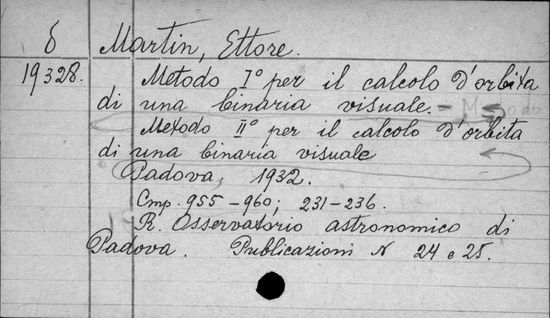 б Martin, Ettore.
19328. Metodo I° per il calcolo d'orbita
di una binaria visuale. –
Metodo II° per il calcolo d'orbita
di una binaria visuale
Padova, 1932.
Стр. 955-960; 231-236.
R. Osservatorio astronomico di
Padova. Publicazioni N 24 e 25.